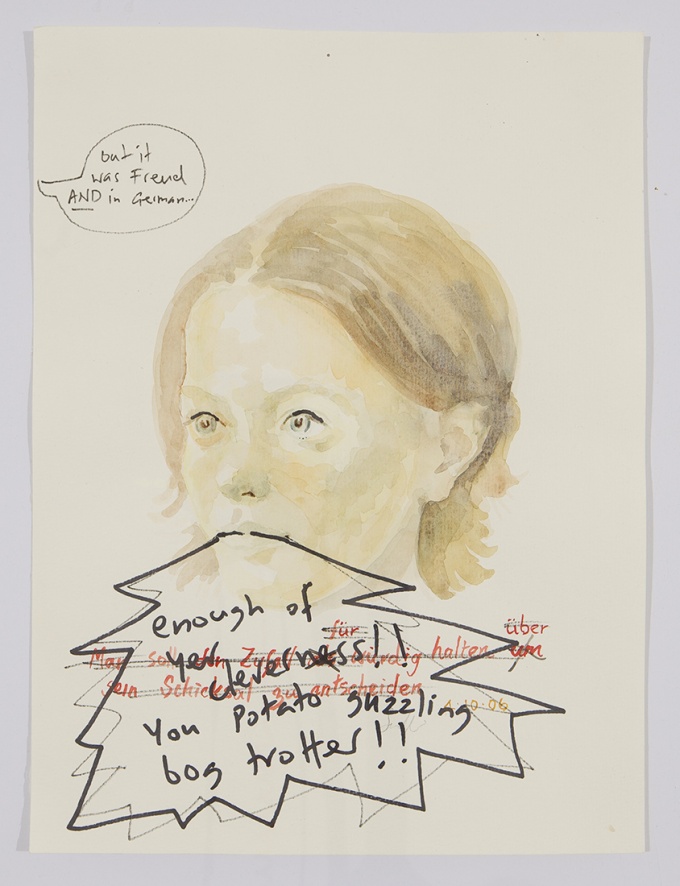 but it
was Freud
AND in German...
enough of
yer cleverness!!
You potato guzzling
bog trotter!!
für
über
Man soll den Zufall würdig halten um
sein Schicksal zu entscheiden
4.10.06